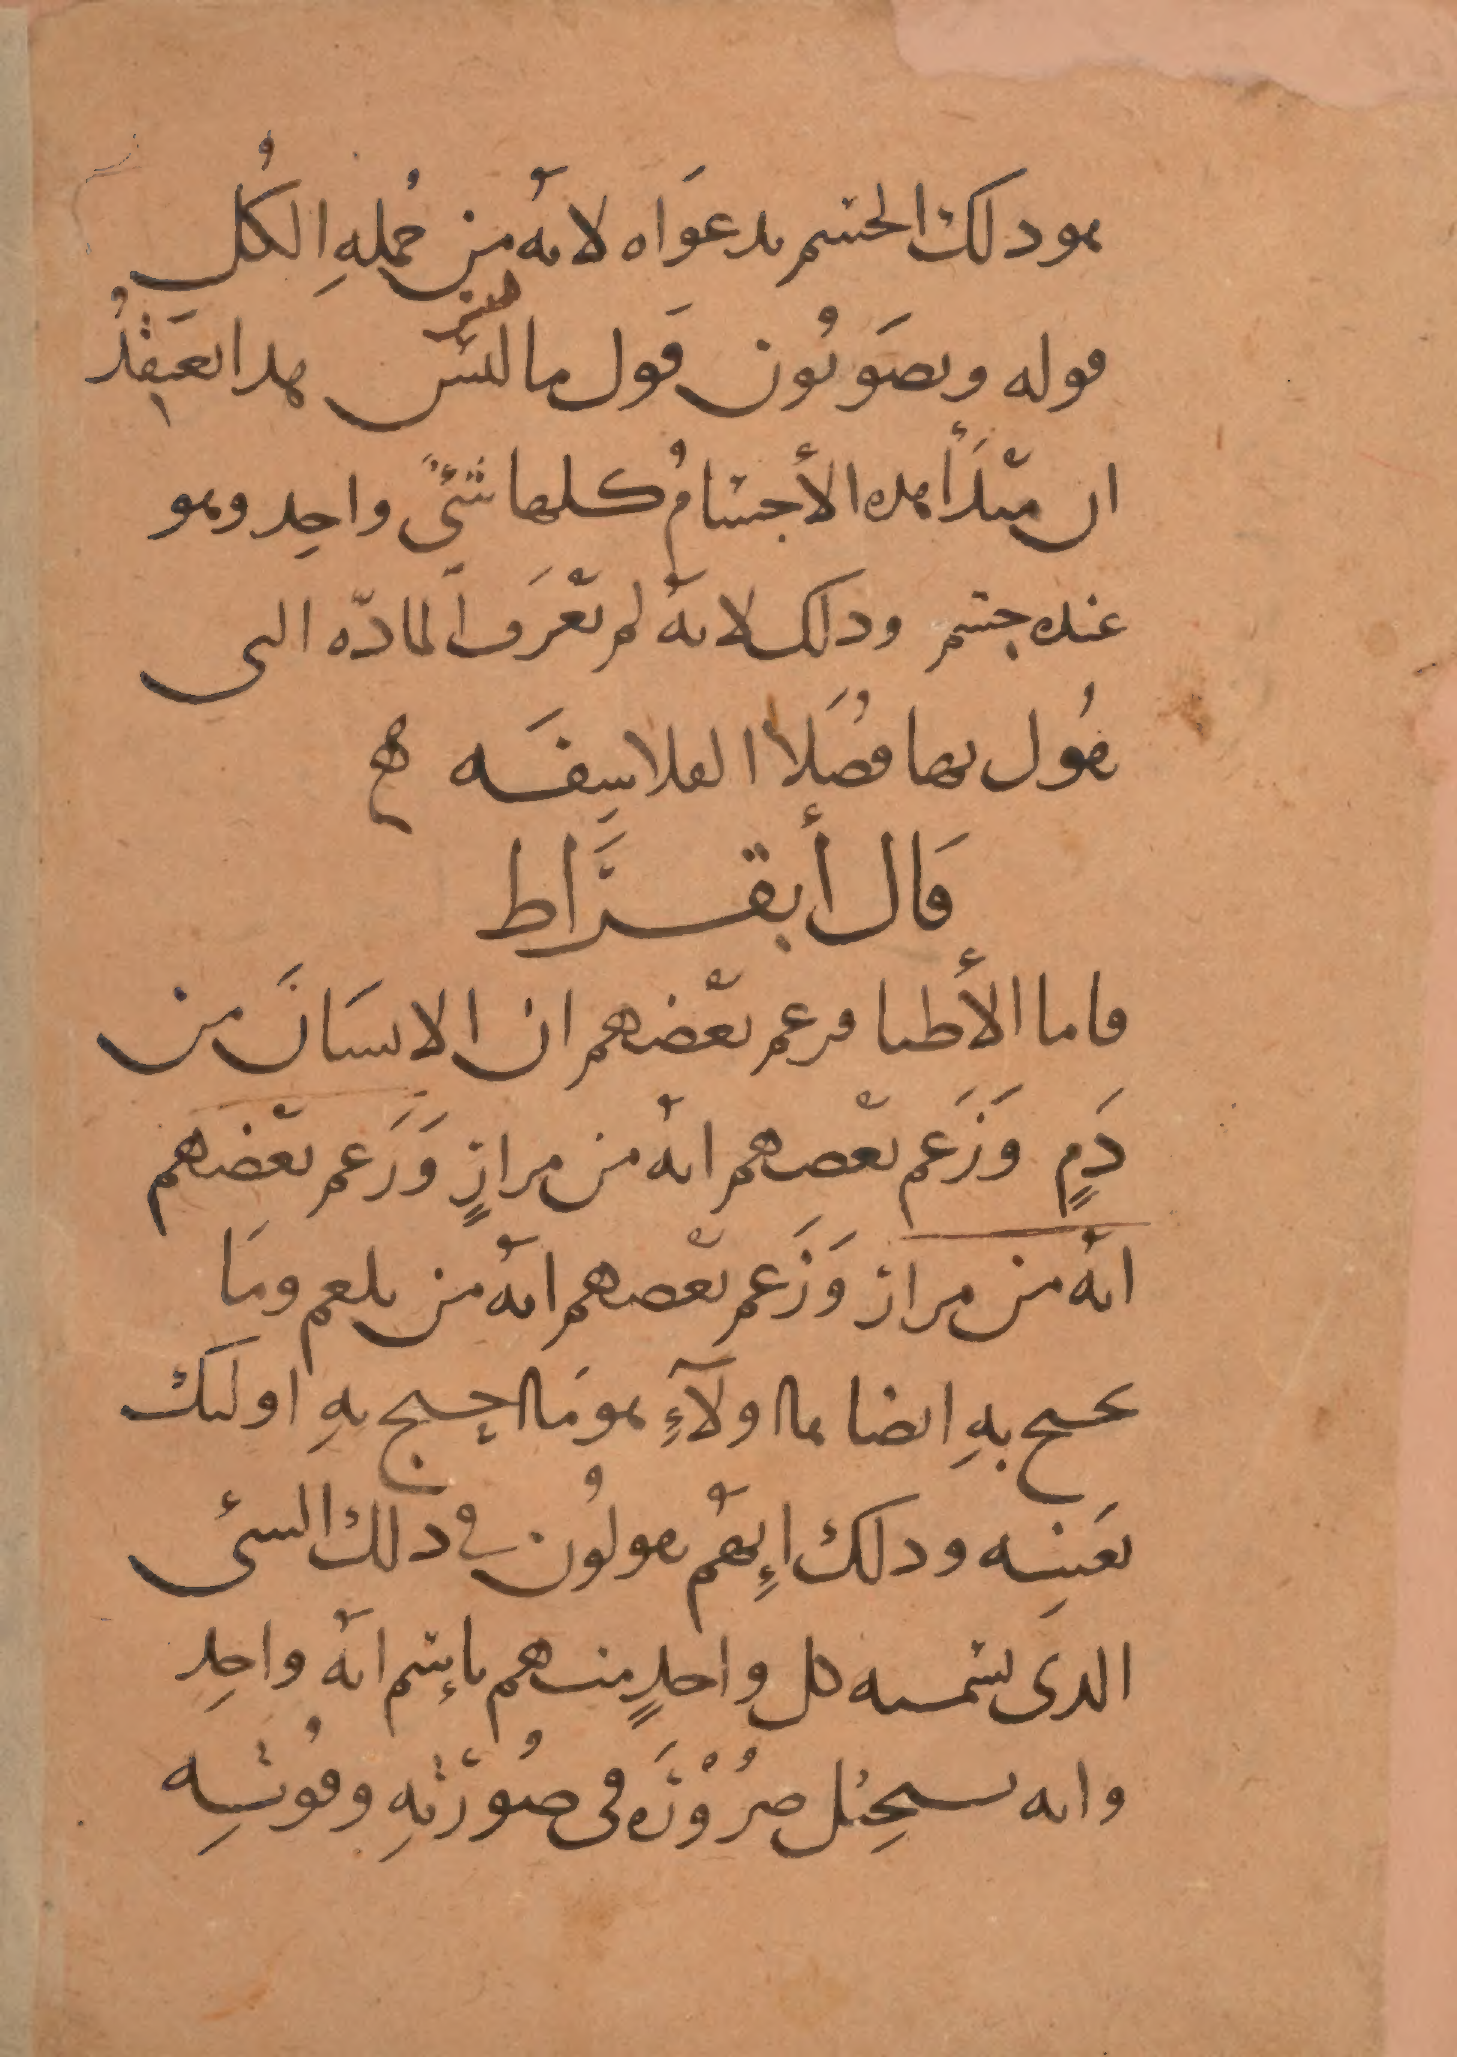 هو ذلك الجسم بدعواه لانه من جملهِ الكُل
قوله ويصَوبُون قَول مالسس هذا يعتَقدُ
ان مبدَأ هذه الأجسامُ كلها شئٌ واحِد وهو
عنده جسم وذلك لانه لم يعْرَف المادّه التى
يقُول بها فُضَلاَ الفلاسِفَه ه
قَال أبقــرَاط
فاما الأطبا فزعم بعْضهم ان الانسَانَ من
دَمٍ وَزَعم بعْضهم انهُ من مرارٍ وَزَعم بعْضهم
انهُ من مرار وَزَعم بعْضهم انهُ من بلغم ومَا
يحتج بهِ ايضا هاولآءِ هو مَا احتج بهِ اولىك
بعَينِه وذلك إِنهُم يقولُون فى ذلك الشئ
الذى يسميه كل واحدٍ منهم بإسم انهُ واحِد
وانه يستحِيل ضرُوْرَه فى صُورَتهِ وقُوتِه